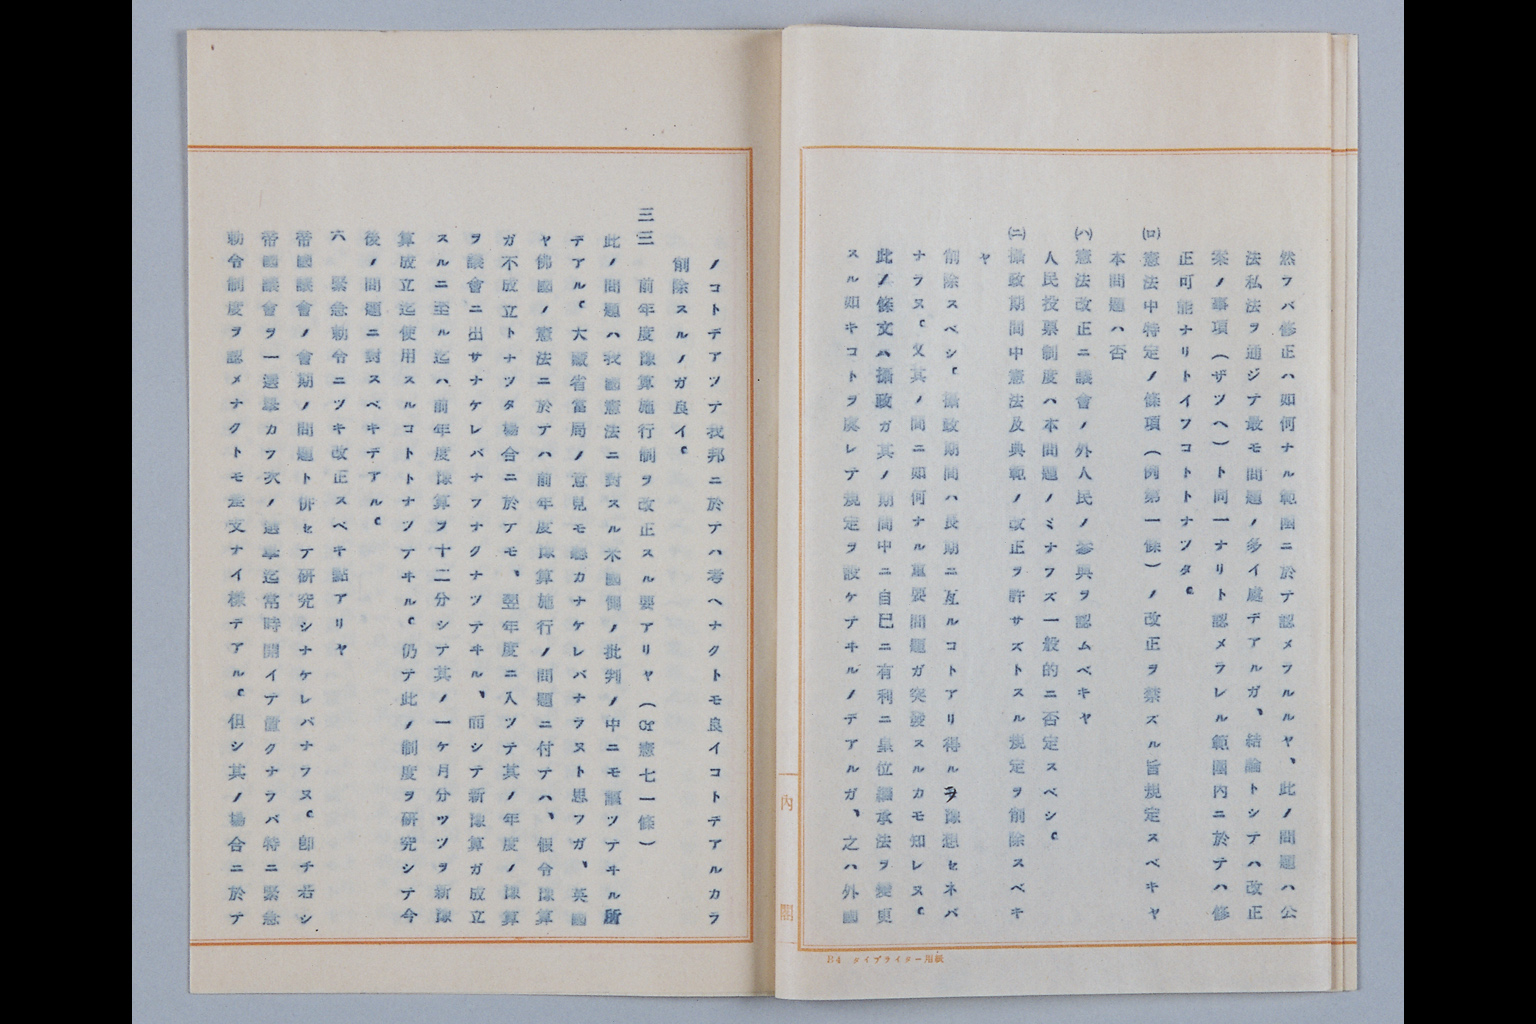 然ラバ修正ハ如何ナル範圍ニ於テ認メラルルヤ、此ノ問題ハ公
法私法ヲ通ジテ最モ問題ノ多イ處デアルガ、結論トシテハ改正
案ノ事項（ザツヘ）ト同一ナリト認メラレル範圍内ニ於テハ修
正可能ナリトイフコトトナツタ。
(ロ)憲法中特定ノ條項（例第一條）ノ改正ヲ禁ズル旨規定スベキヤ
本問題ハ否
(ハ)憲法改正ニ議會ノ外人民ノ參與ヲ認ムベキヤ
人民投票制度ハ本問題ノミナラズ一般的ニ否定スベシ。
(ニ)攝政期間中憲法及典範ノ改正ヲ許サズトスル規定ヲ削除スベキ
ヤ
削除スベシ。攝政期間ハ長期ニ亙ルコトアリ得ルヲ豫想セネバ
ナラヌ。又其ノ間ニ如何ナル重要問題ガ突發スルカモ知レヌ。
此ノ條文ハ攝政ガ其ノ期間中ニ自己ニ有利ニ皇位繼承法ヲ變更
スル如キコトヲ慮レテ規定ヲ設ケテヰルノデアルガ、之ハ外國
内閣
B4 タイプライター用紙
ノコトデアツテ我邦ニ於テハ考ヘナクトモ良イコトデアルカラ
削除スルノガ良イ。
三三 前年度豫算施行制ヲ改正スル要アリヤ（Cf憲七一條）
此ノ問題ハ我國憲法ニ對スル米國側ノ批判ノ中ニモ謳ツテヰル所
デアル。大藏省當局ノ意見モ聽カナケレバナラヌト思フガ、英國
ヤ佛國ノ憲法ニ於テハ前年度豫算施行ノ問題ニ付テハ、假令豫算
ガ不成立トナツタ場合ニ於テモ、翌年度ニ入ツテ其ノ年度ノ豫算
ヲ議會ニ出サナケレバナラナクナツテヰル、而シテ新豫算ガ成立
スルニ至ル迄ハ前年度豫算ヲ十二分シテ其ノ一ケ月分ツツヲ新豫
算成立迄使用スルコトトナツテヰル。仍テ此ノ制度ヲ研究シテ今
後ノ問題ニ對スベキデアル。
六 緊急勅令ニツキ改正スベキ點アリヤ
帝國議會ノ會期ノ問題ト併セテ研究シナケレバナラヌ。卽チ若シ
帝國議會ヲ一選擧カラ次ノ選擧迄常時開イテ置クナラバ特ニ緊急
勅令制度ヲ認メナクトモ差支ナイ樣デアル。但シ其ノ場合ニ於テ